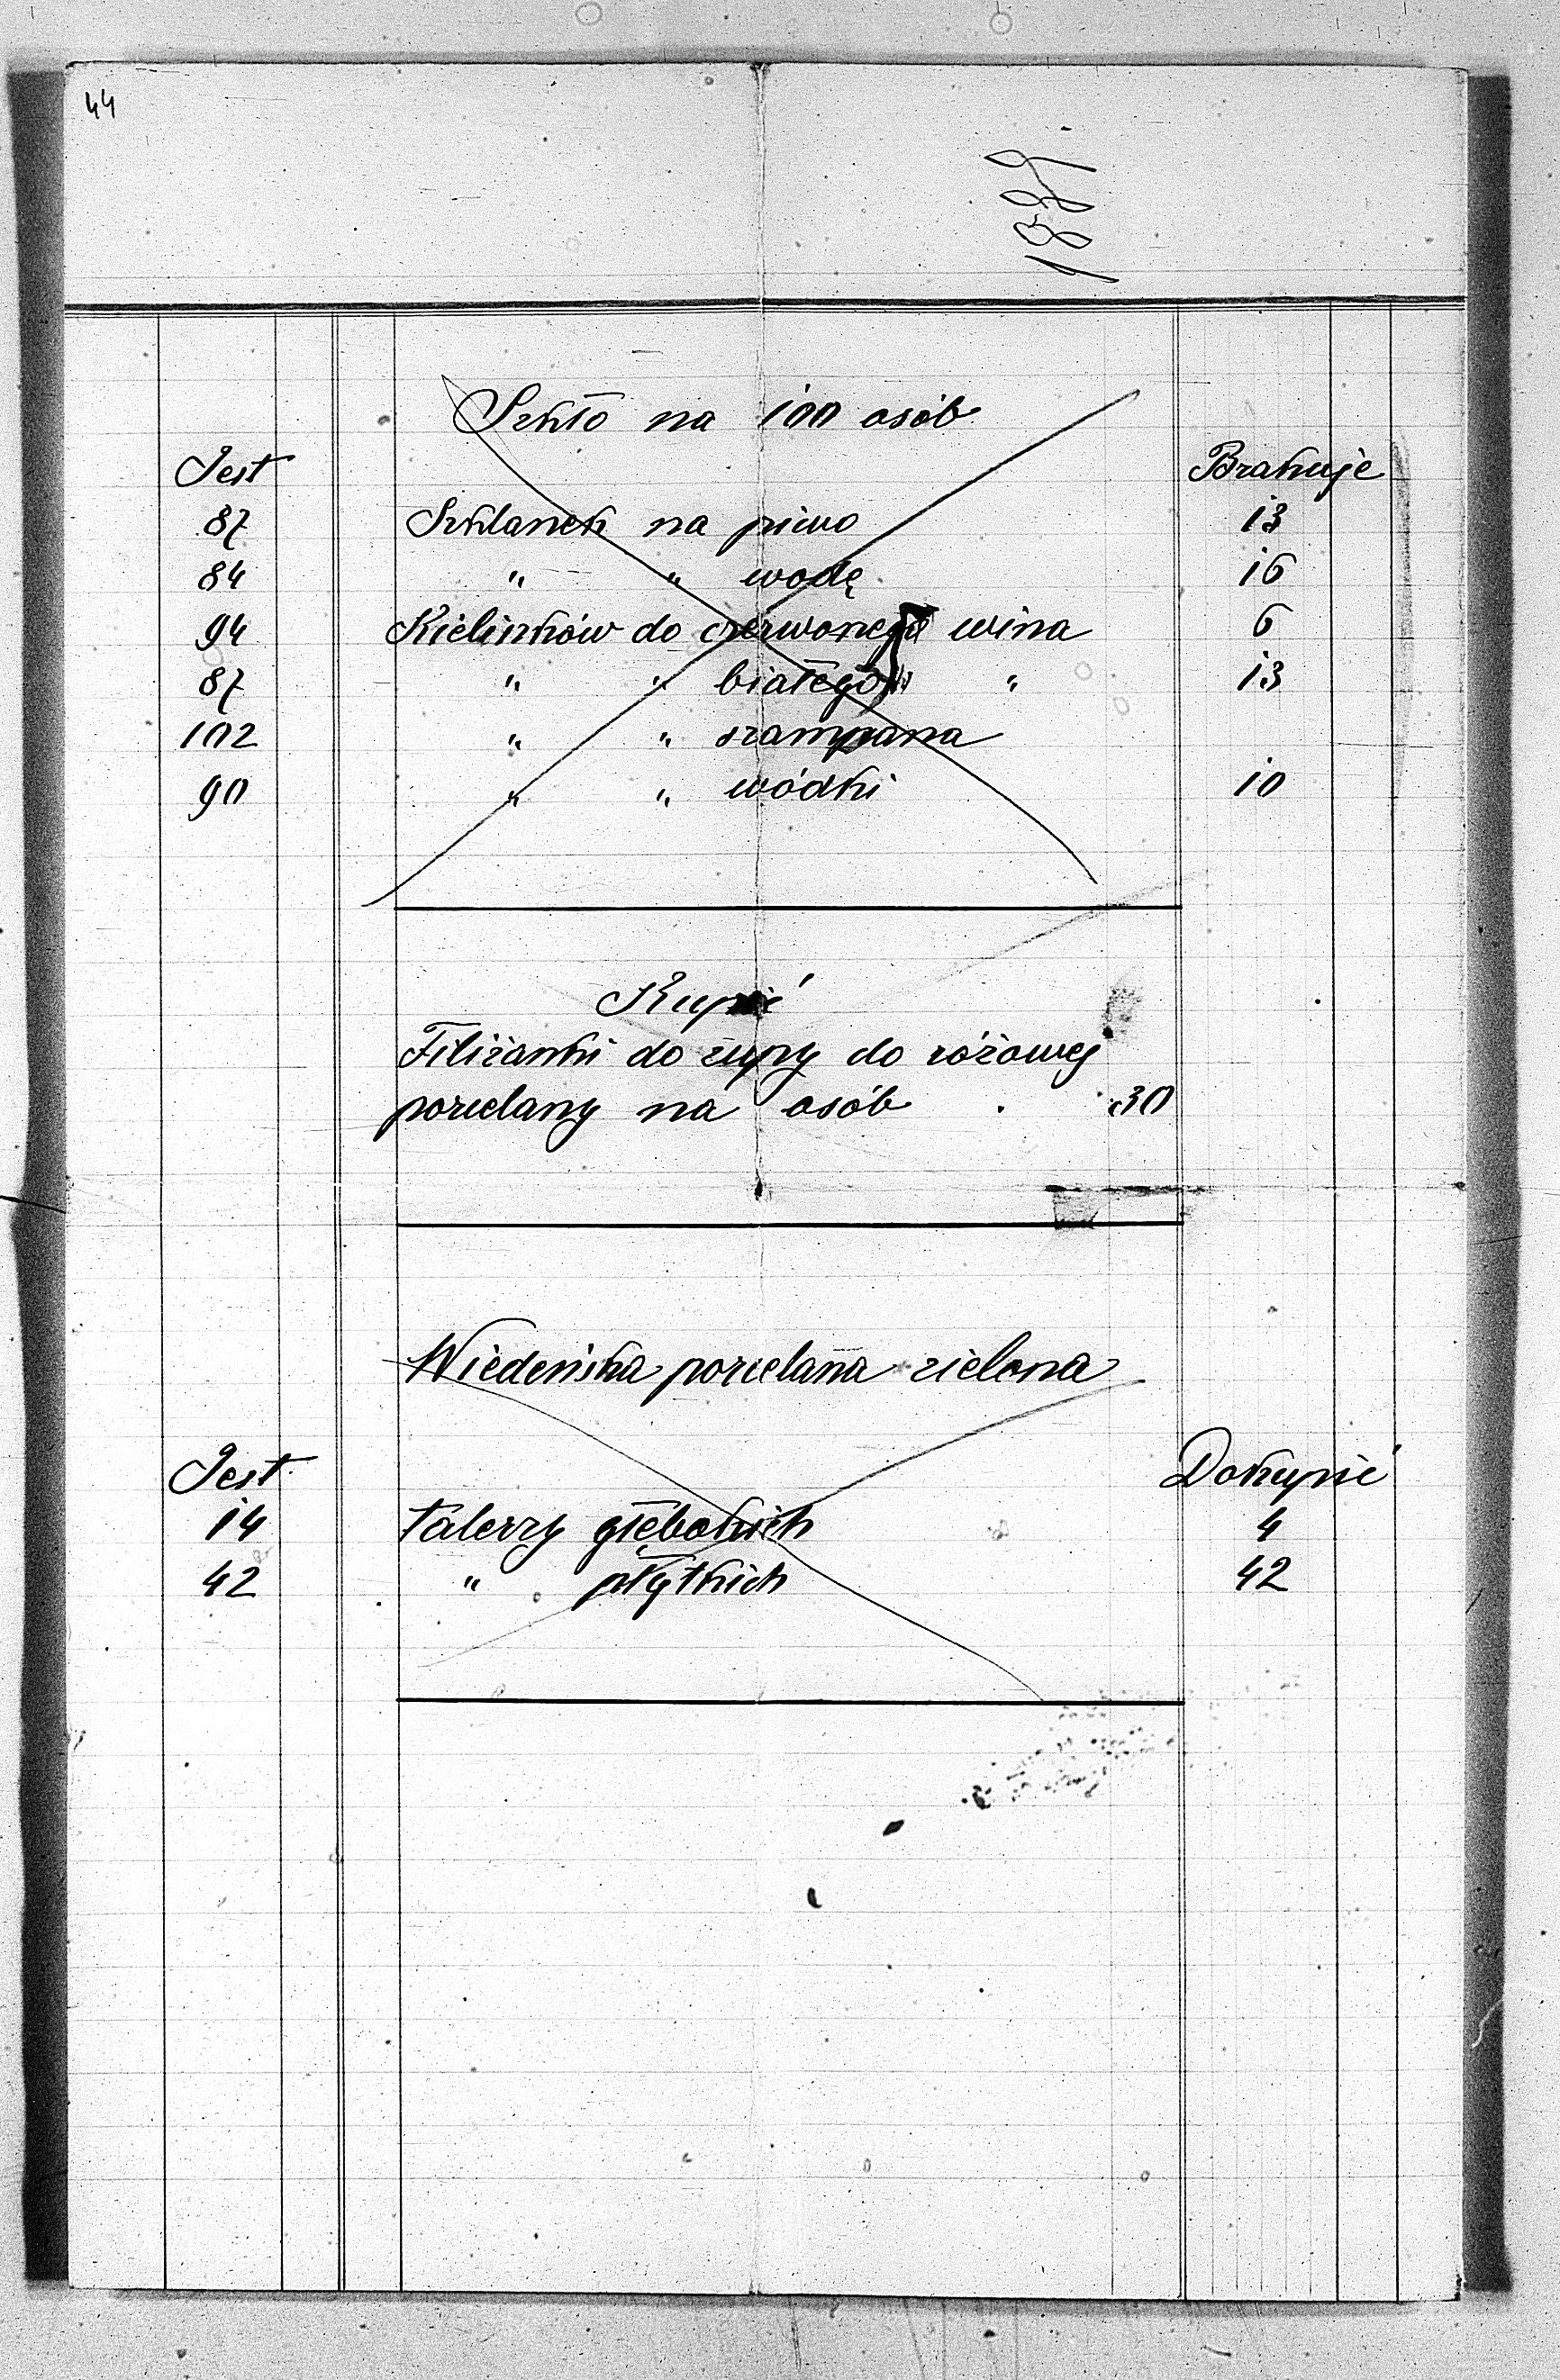 44
1887
Szkło na 100 osób
Jest Brakuje
87 Szklanek na piwo 13
84 " " wodę 16
94 Kieliszków do czerwonego wina 6
87 " " białego " 13
102 " " szampana
90 " " wódki 10
Kupić
Filiżanki do zupy do różowej
porcelany na osób . 30
Wiedeńska porcelana zielona
Jest Dokupić
14 talerzy głębokich 4
42 " płytkich 42